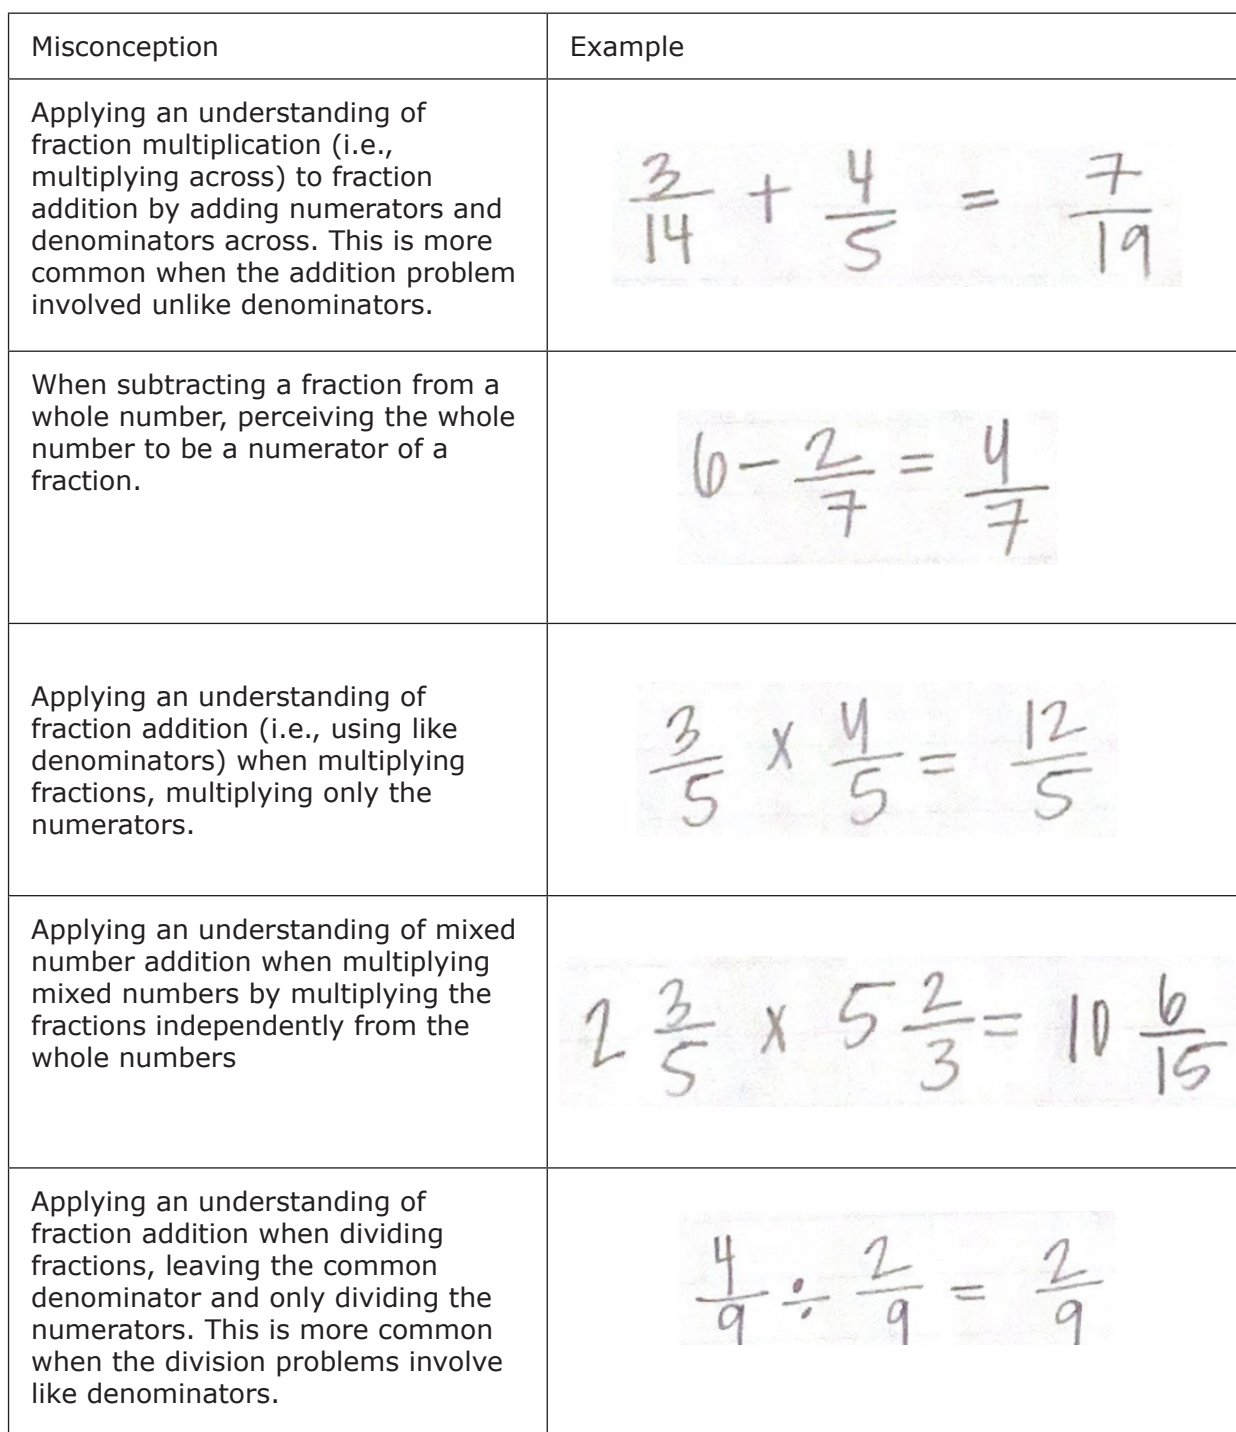 Misconception
Example
Applying an understanding of
fraction multiplication (i.e.,
multiplying across) to fraction
addition by adding numerators and
denominators across. This is more
common when the addition problem
involved unlike denominators.
3/14 + 4/5 = 7/19
When subtracting a fraction from a
whole number, perceiving the whole
number to be a numerator of a
fraction.
6 - 2/7 = 4/7
Applying an understanding of
fraction addition (i.e., using like
denominators) when multiplying
fractions, multiplying only the
numerators.
3/5 x 4/5 = 12/5
Applying an understanding of mixed
number addition when multiplying
mixed numbers by multiplying the
fractions independently from the
whole numbers
2 3/5 x 5 2/3 = 10 6/15
Applying an understanding of
fraction addition when dividing
fractions, leaving the common
denominator and only dividing the
numerators. This is more common
when the division problems involve
like denominators.
4/9 ÷ 2/9 = 2/9